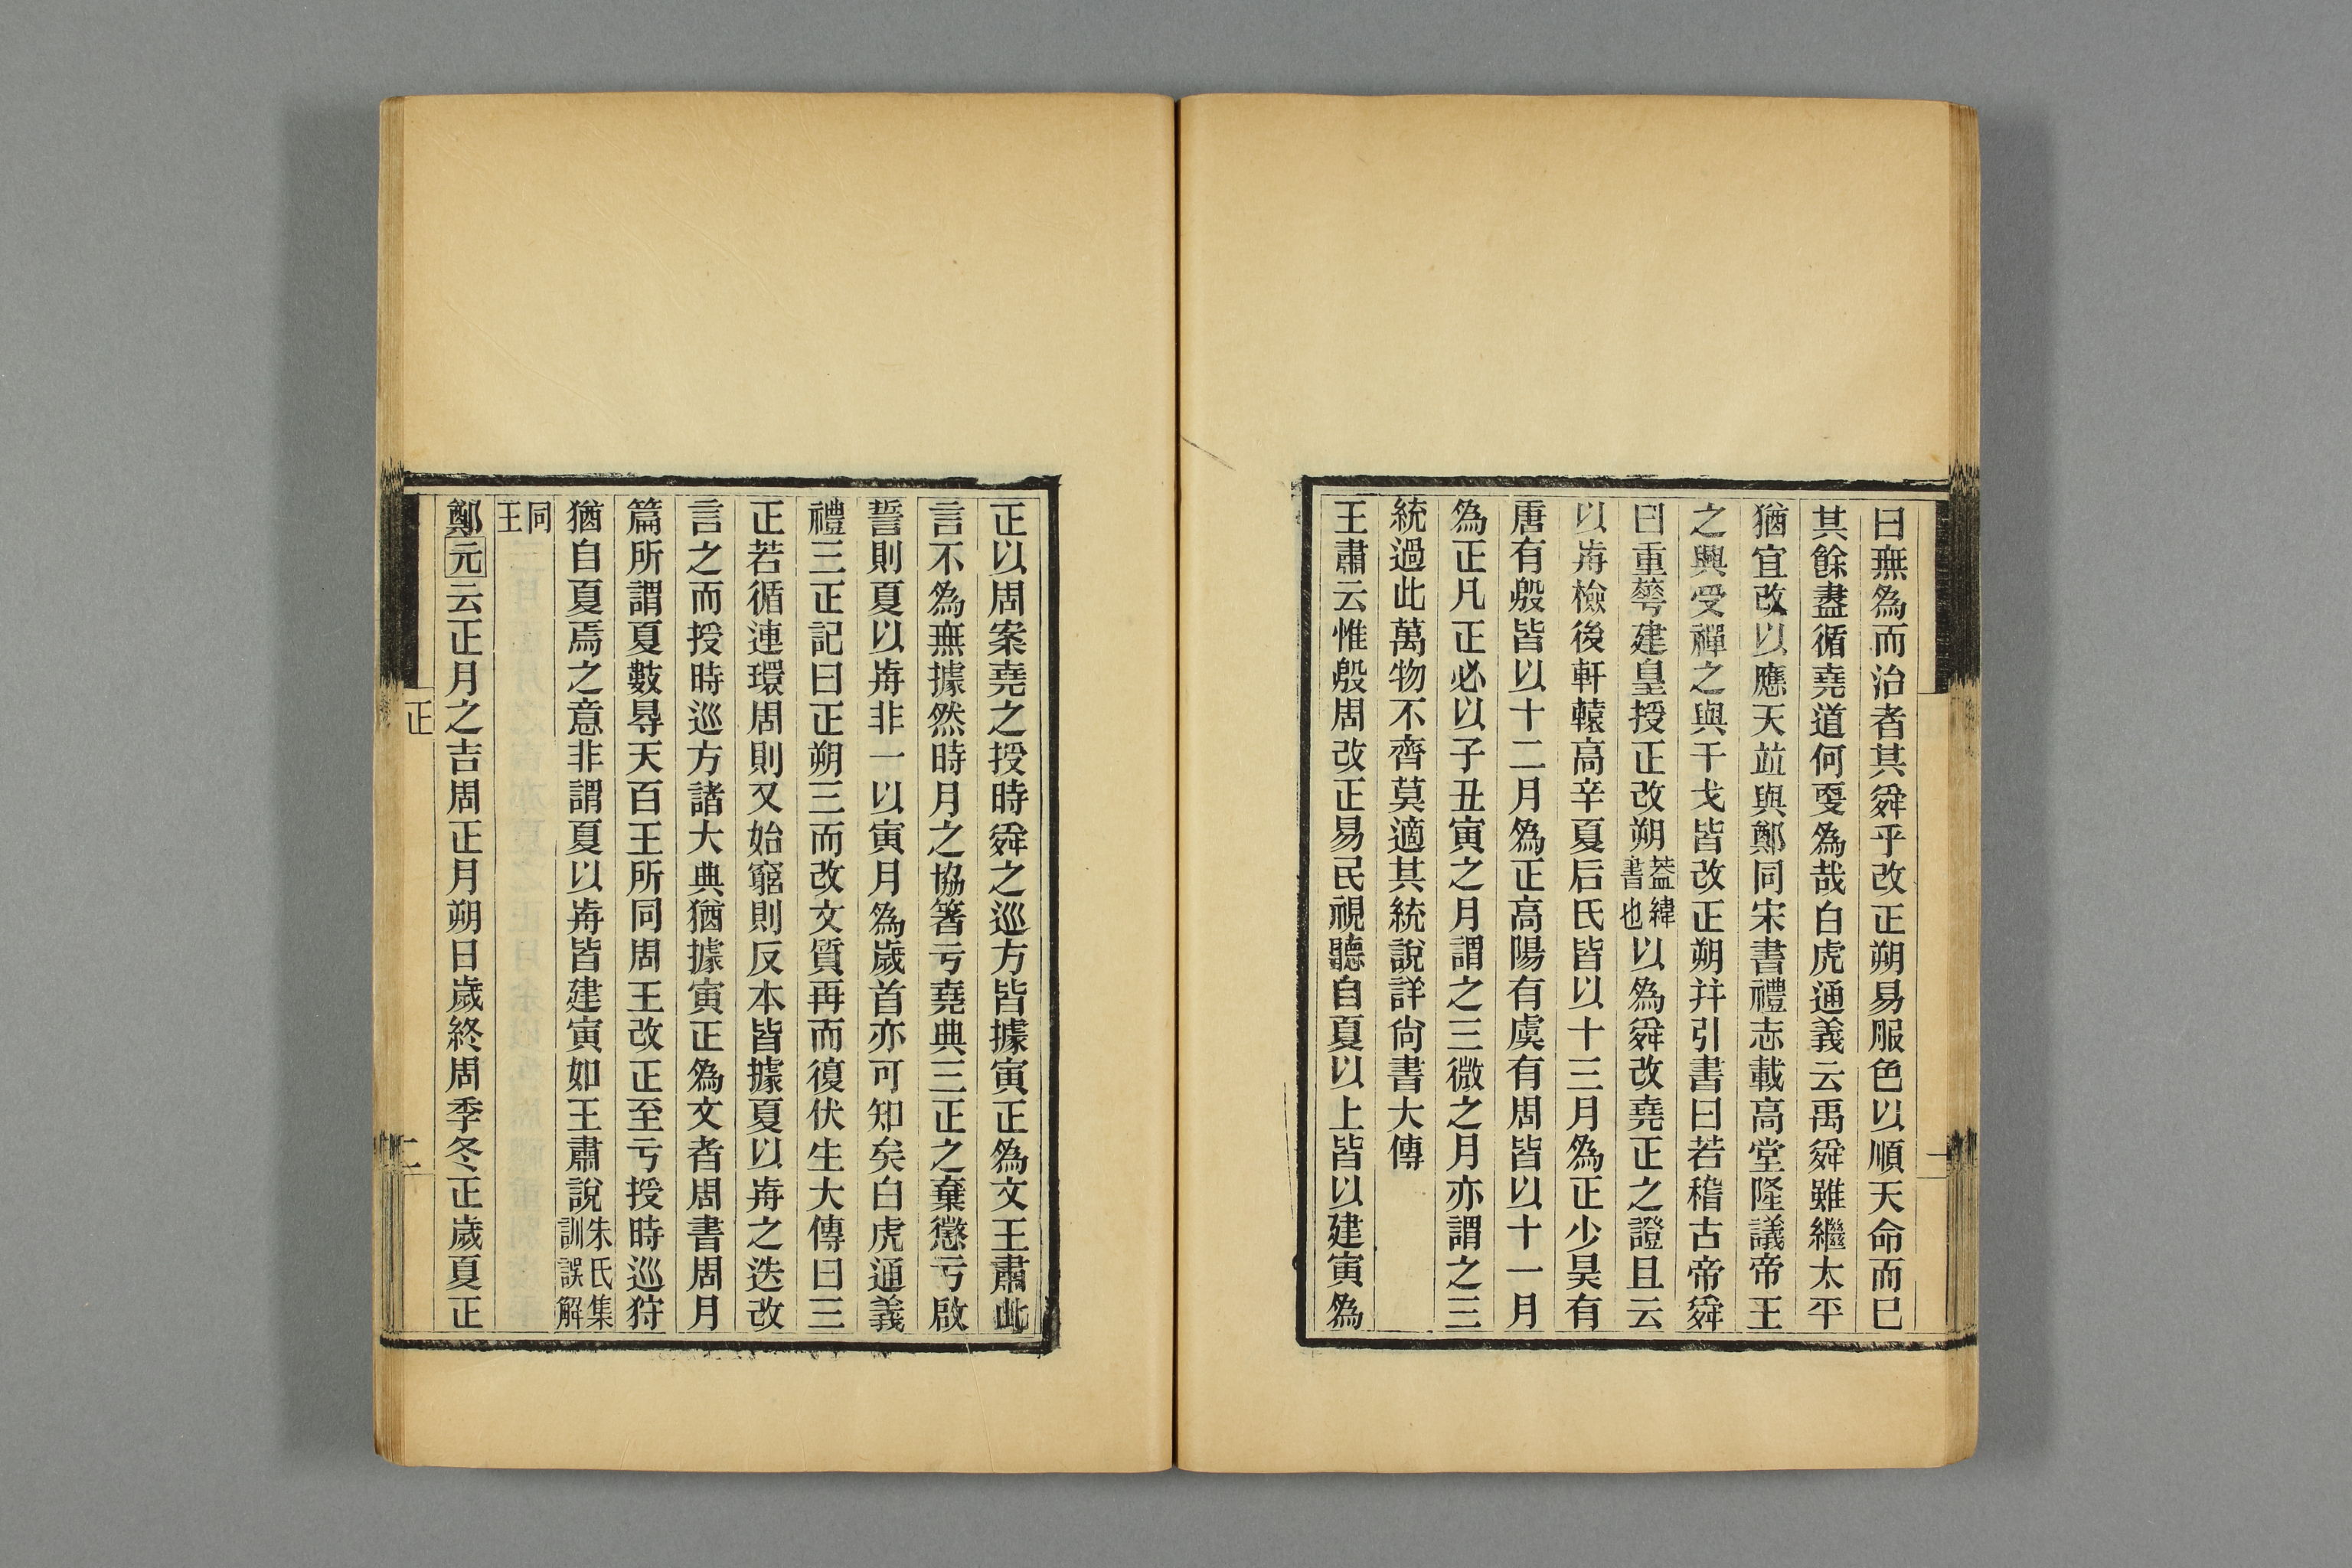 曰無爲而治者其舜乎改正朔易服色以順天命而已
其餘盡循堯道何夓爲哉白虎通義云禹舜雖繼太平
猶宜改以應天竝與鄭同宋書禮志載高堂隆議帝王
之興受禪之與干戈皆改正朔幷引書曰若稽古帝舜
曰重華建皇授正改朔葢緯書也以爲舜改堯正之證且云
以歬檢後軒轅高辛夏后氏皆以十三月爲正少昊有
唐有殷皆以十二月爲正高陽有虞有周皆以十一月
爲正凡正必以子丑寅之月謂之三微之月亦謂之三
統過此萬物不齊莫適其統說詳尙書大傳
王肅云惟殷周改正易民視聽自夏以上皆以建寅爲
正以周案堯之授時舜之巡方皆據寅正爲文王肅此
言不爲無據然時月之協箸亏堯典三正之棄懲亏啟
誓則夏以歬非一以寅月爲歲首亦可知矣白虎通義
禮三正記曰正朔三而改文質再而復伏生大傳曰三
正若循連環周則又始窮則反本皆據夏以歬之迭改
言之而授時巡方諸大典猶據寅正爲文者周書周月
篇所謂夏數㝵天百王所同周王改正至亏授時巡狩
猶自夏焉之意非謂夏以歬皆建寅如王肅說朱氏集訓誤解
同王
鄭元云正月之吉周正月朔日歲終周季冬正歲夏正
正
二